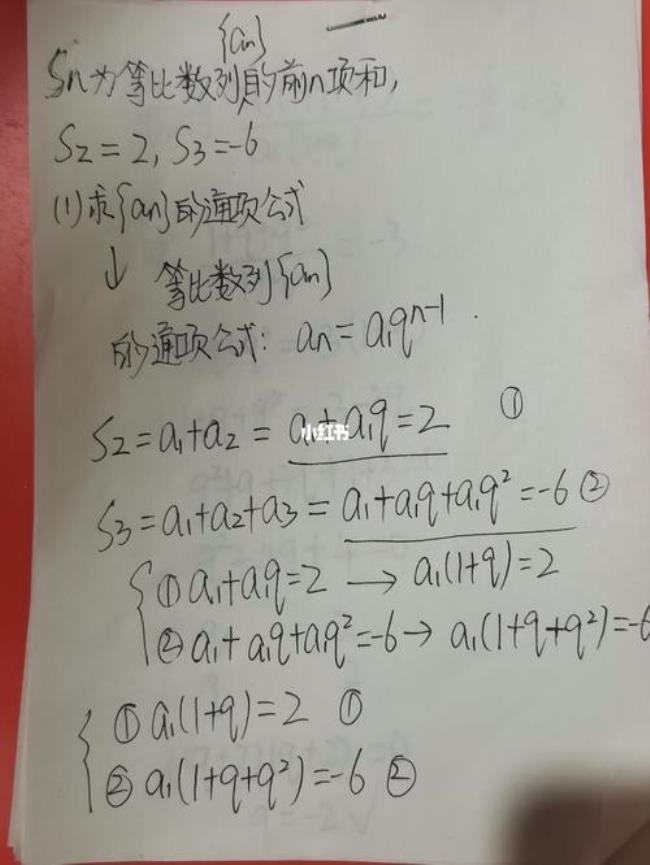 {an}
Sn为等比数列的前n项和,
S2=2, S3=-6
(1)求{an}的通项公式
↓ 等比数列{an}
的通项公式: an=a1qⁿ⁻¹.
S2=a1+a2=a1+a1q=2 ①
小红书
S3=a1+a2+a3=a1+a1q+a1q²=-6②
①a1+a1q=2 → a1(1+q)=2
②a1+a1q+a1q²=-6→ a1(1+q+q²)=-6
①a1(1+q)=2 ①
②a1(1+q+q²)=-6 ②